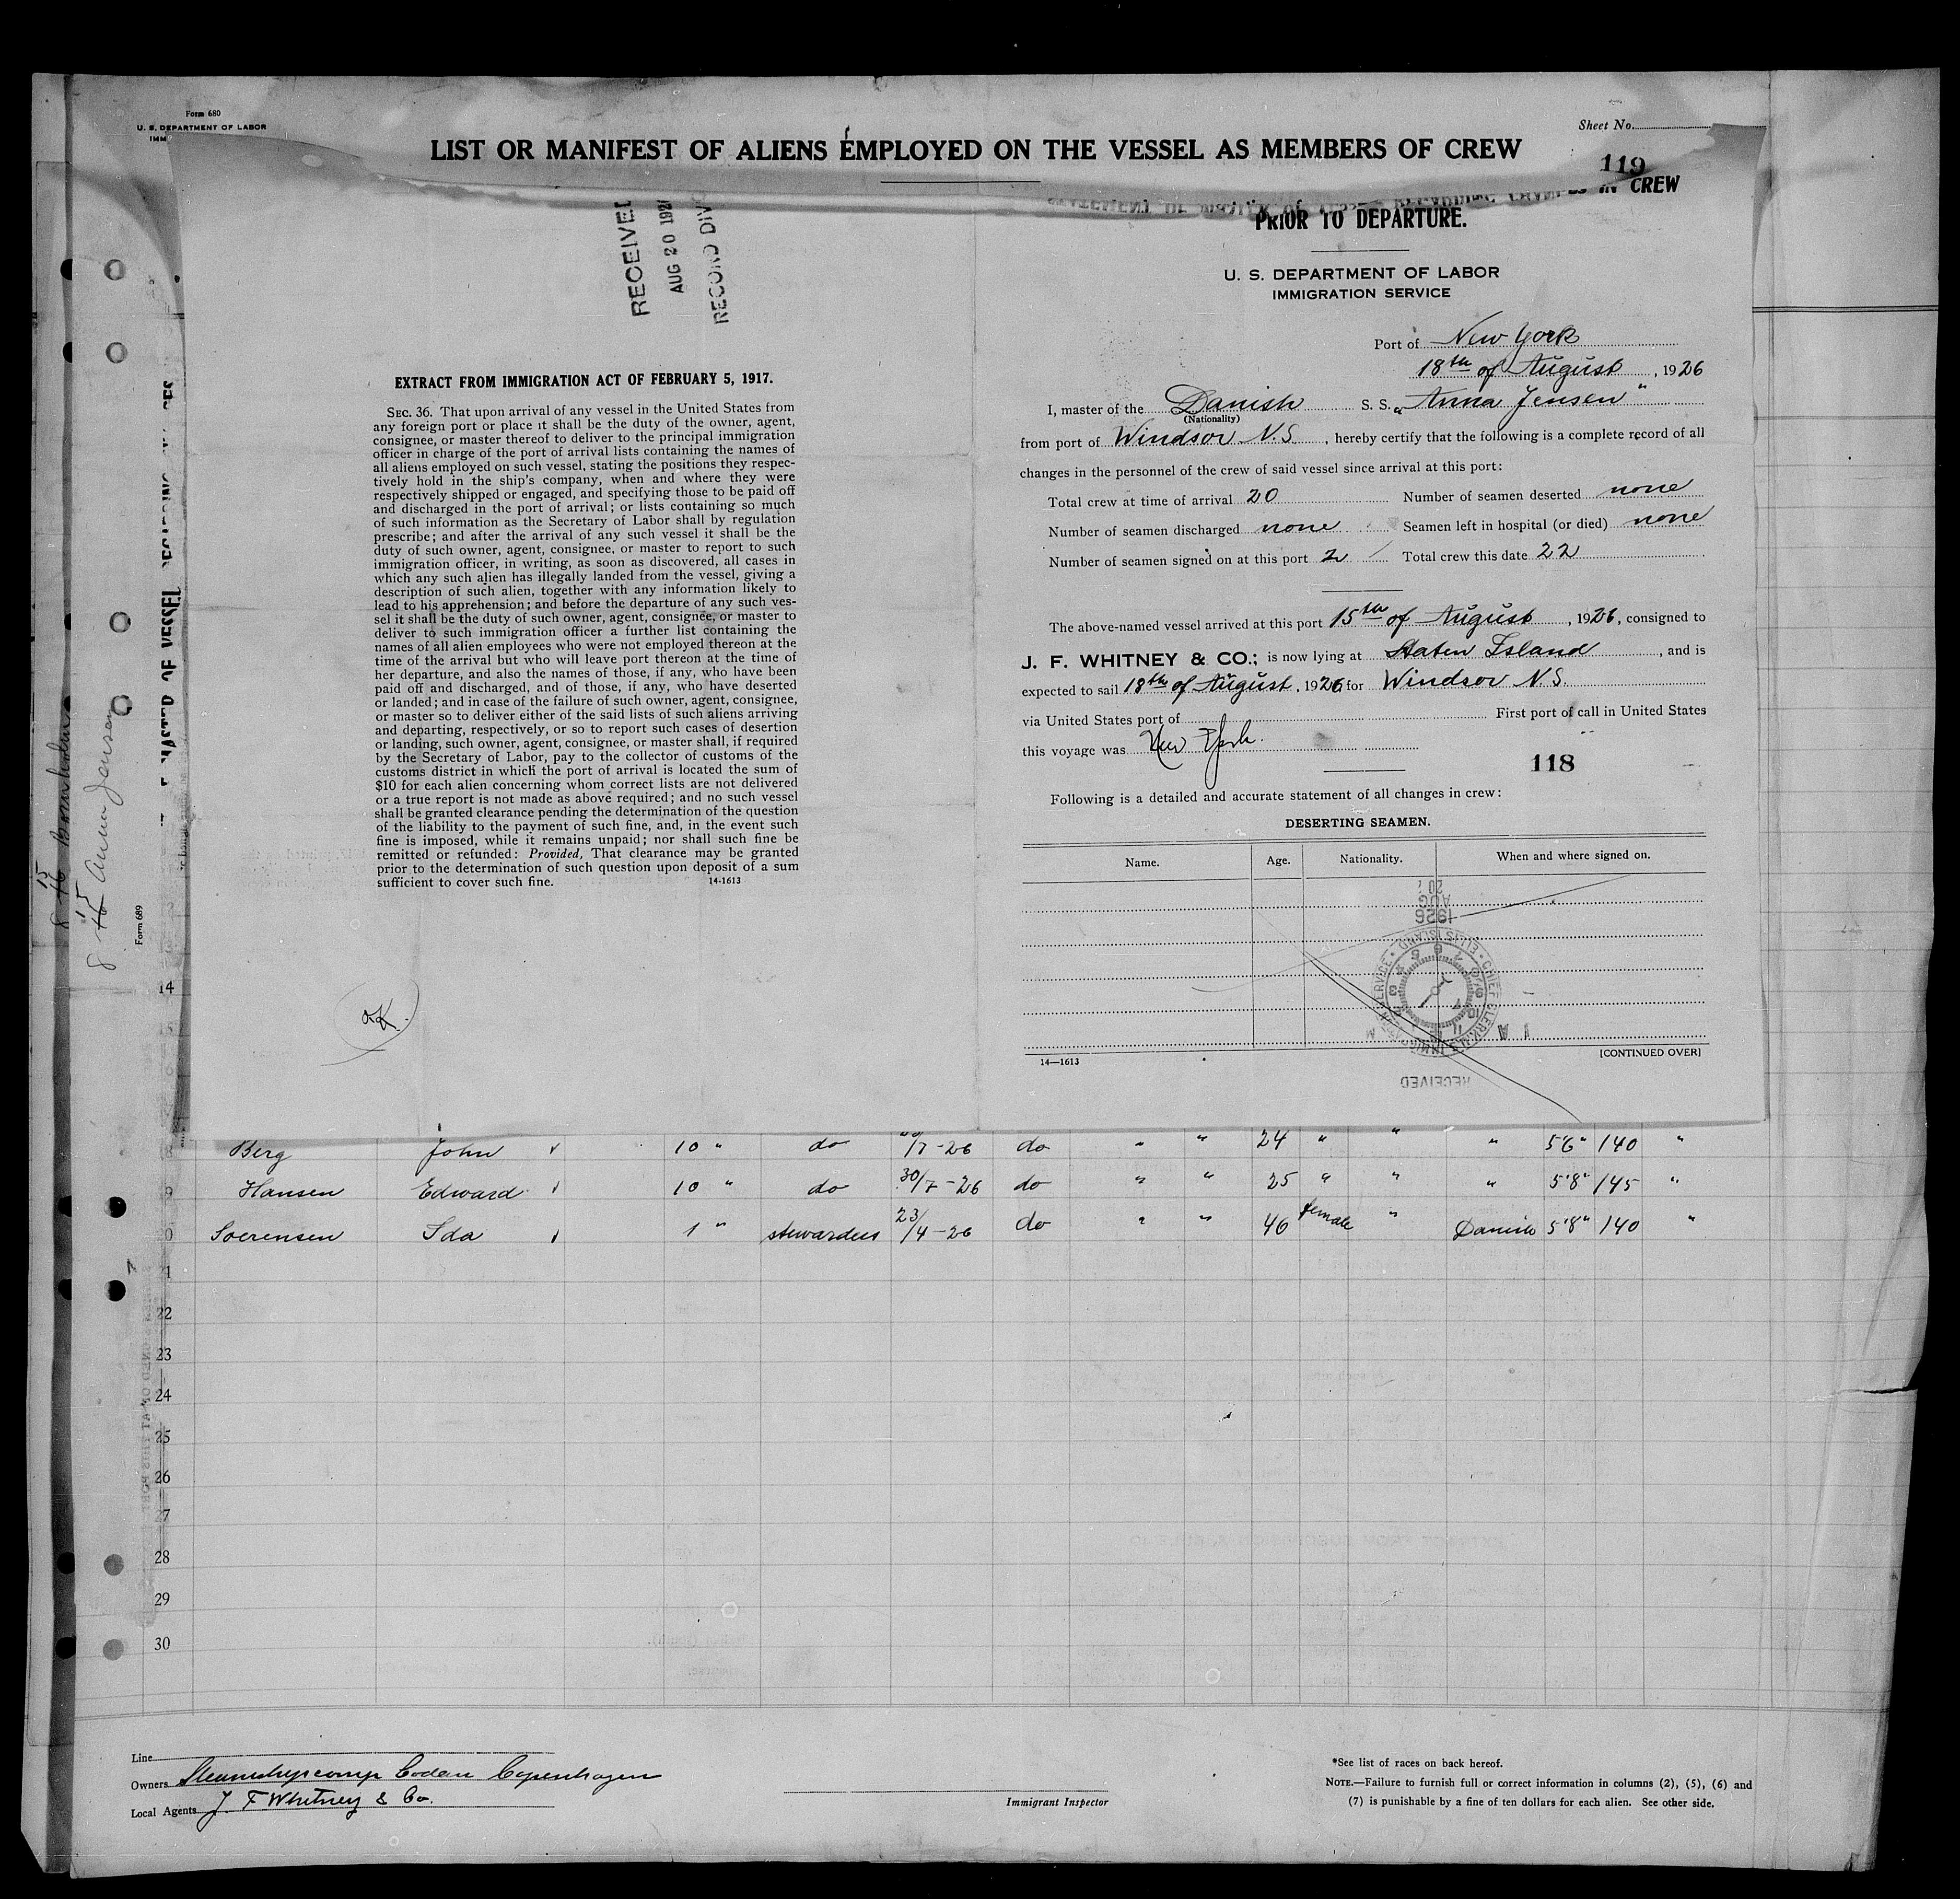 Form 680
U. S. DEPARTMENT OF LABOR
IMM
Sheet No.
LIST OR MANIFEST OF ALIENS EMPLOYED ON THE VESSEL AS MEMBERS OF CREW
119
IN CREW
PRIOR TO DEPARTURE.
RECEIVED
AUG 20 192
RECORD DIV
EXTRACT FROM IMMIGRATION ACT OF FEBRUARY 5, 1917.
SEC. 36. That upon arrival of any vessel in the United States from
any foreign port or place it shall be the duty of the owner, agent,
consignee, or master thereof to deliver to the principal immigration
officer in charge of the port of arrival lists containing the names of
all aliens employed on such vessel, stating the positions they respec-
tively hold in the ship's company, when and where they were
respectively shipped or engaged, and specifying those to be paid off
and discharged in the port of arrival; or lists containing so much
of such information as the Secretary of Labor shall by regulation
prescribe; and after the arrival of any such vessel it shall be the
duty of such owner, agent, consignee, or master to report to such
immigration officer, in writing, as soon as discovered, all cases in
which any such alien has illegally landed from the vessel, giving a
description of such alien, together with any information likely to
lead to his apprehension; and before the departure of any such ves-
sel it shall be the duty of such owner, agent, consignee, or master to
deliver to such immigration officer a further list containing the
names of all alien employees who were not employed thereon at the
time of the arrival but who will leave port thereon at the time of
her departure, and also the names of those, if any, who have been
paid off and discharged, and of those, if any, who have deserted
or landed; and in case of the failure of such owner, agent, consignee,
or master so to deliver either of the said lists of such aliens arriving
and departing, respectively, or so to report such cases of desertion
or landing, such owner, agent, consignee, or master shall, if required
by the Secretary of Labor, pay to the collector of customs of the
customs district in which the port of arrival is located the sum of
$10 for each alien concerning whom correct lists are not delivered
or a true report is not made as above required; and no such vessel
shall be granted clearance pending the determination of the question
of the liability to the payment of such fine, and, in the event such
fine is imposed, while it remains unpaid; nor shall such fine be
remitted or refunded: Provided, That clearance may be granted
prior to the determination of such question upon deposit of a sum
sufficient to cover such fine. 14-1613
OK.
U. S. DEPARTMENT OF LABOR
IMMIGRATION SERVICE
Port of New York
18th of August, 1926
I, master of the Danish S. S. "Anna Jensen"
(Nationality)
from port of Windsor N.S., hereby certify that the following is a complete record of all
changes in the personnel of the crew of said vessel since arrival at this port:
Total crew at time of arrival 20 Number of seamen deserted none
Number of seamen discharged none Seamen left in hospital (or died) none
Number of seamen signed on at this port 2 Total crew this date 22
The above-named vessel arrived at this port 15th of August, 1926, consigned to
J. F. WHITNEY & CO.; is now lying at Staten Island, and is
expected to sail 18th of August, 1926 for Windsor N.S.
via United States port of First port of call in United States
this voyage was New York.
118
Following is a detailed and accurate statement of all changes in crew:
DESERTING SEAMEN.
Name. Age. Nationality. When and where signed on.
AUG
1926
CHIEF CLERK
ELLIS ISLAND
RECEIVED
14—1613 [CONTINUED OVER]
Form 689
8 15 Anna Jensen
14
Berg John 10 " do /7-26 do " " 24 " " " 5'6" 140 "
9 Hansen Edward 10 " do 30/7-26 do " " 25 " " " 5'8" 145 "
20 Soerensen Ida 1 " stewardess 23/4-26 do " " 46 female " Danish 5'8" 140 "
21
22
23
24
25
26
27
28
29
30
Line
Owners Steamshipcomp Codan Copenhagen
Local Agents J. F Whitney & Co.
Immigrant Inspector
*See list of races on back hereof.
NOTE.—Failure to furnish full or correct information in columns (2), (5), (6) and
(7) is punishable by a fine of ten dollars for each alien. See other side.